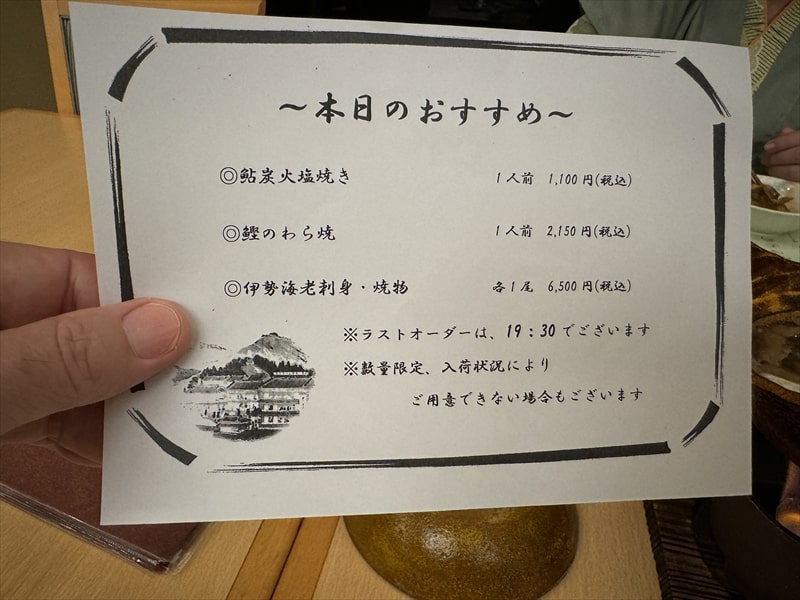 ～本日のおすすめ～
◎鮎炭火塩焼き 1人前 1,100円(税込)
◎鰹のわら焼 1人前 2,150円(税込)
◎伊勢海老刺身・焼物 各1尾 6,500円(税込)
※ラストオーダーは、19：30でございます
※数量限定、入荷状況により
ご用意できない場合もございます